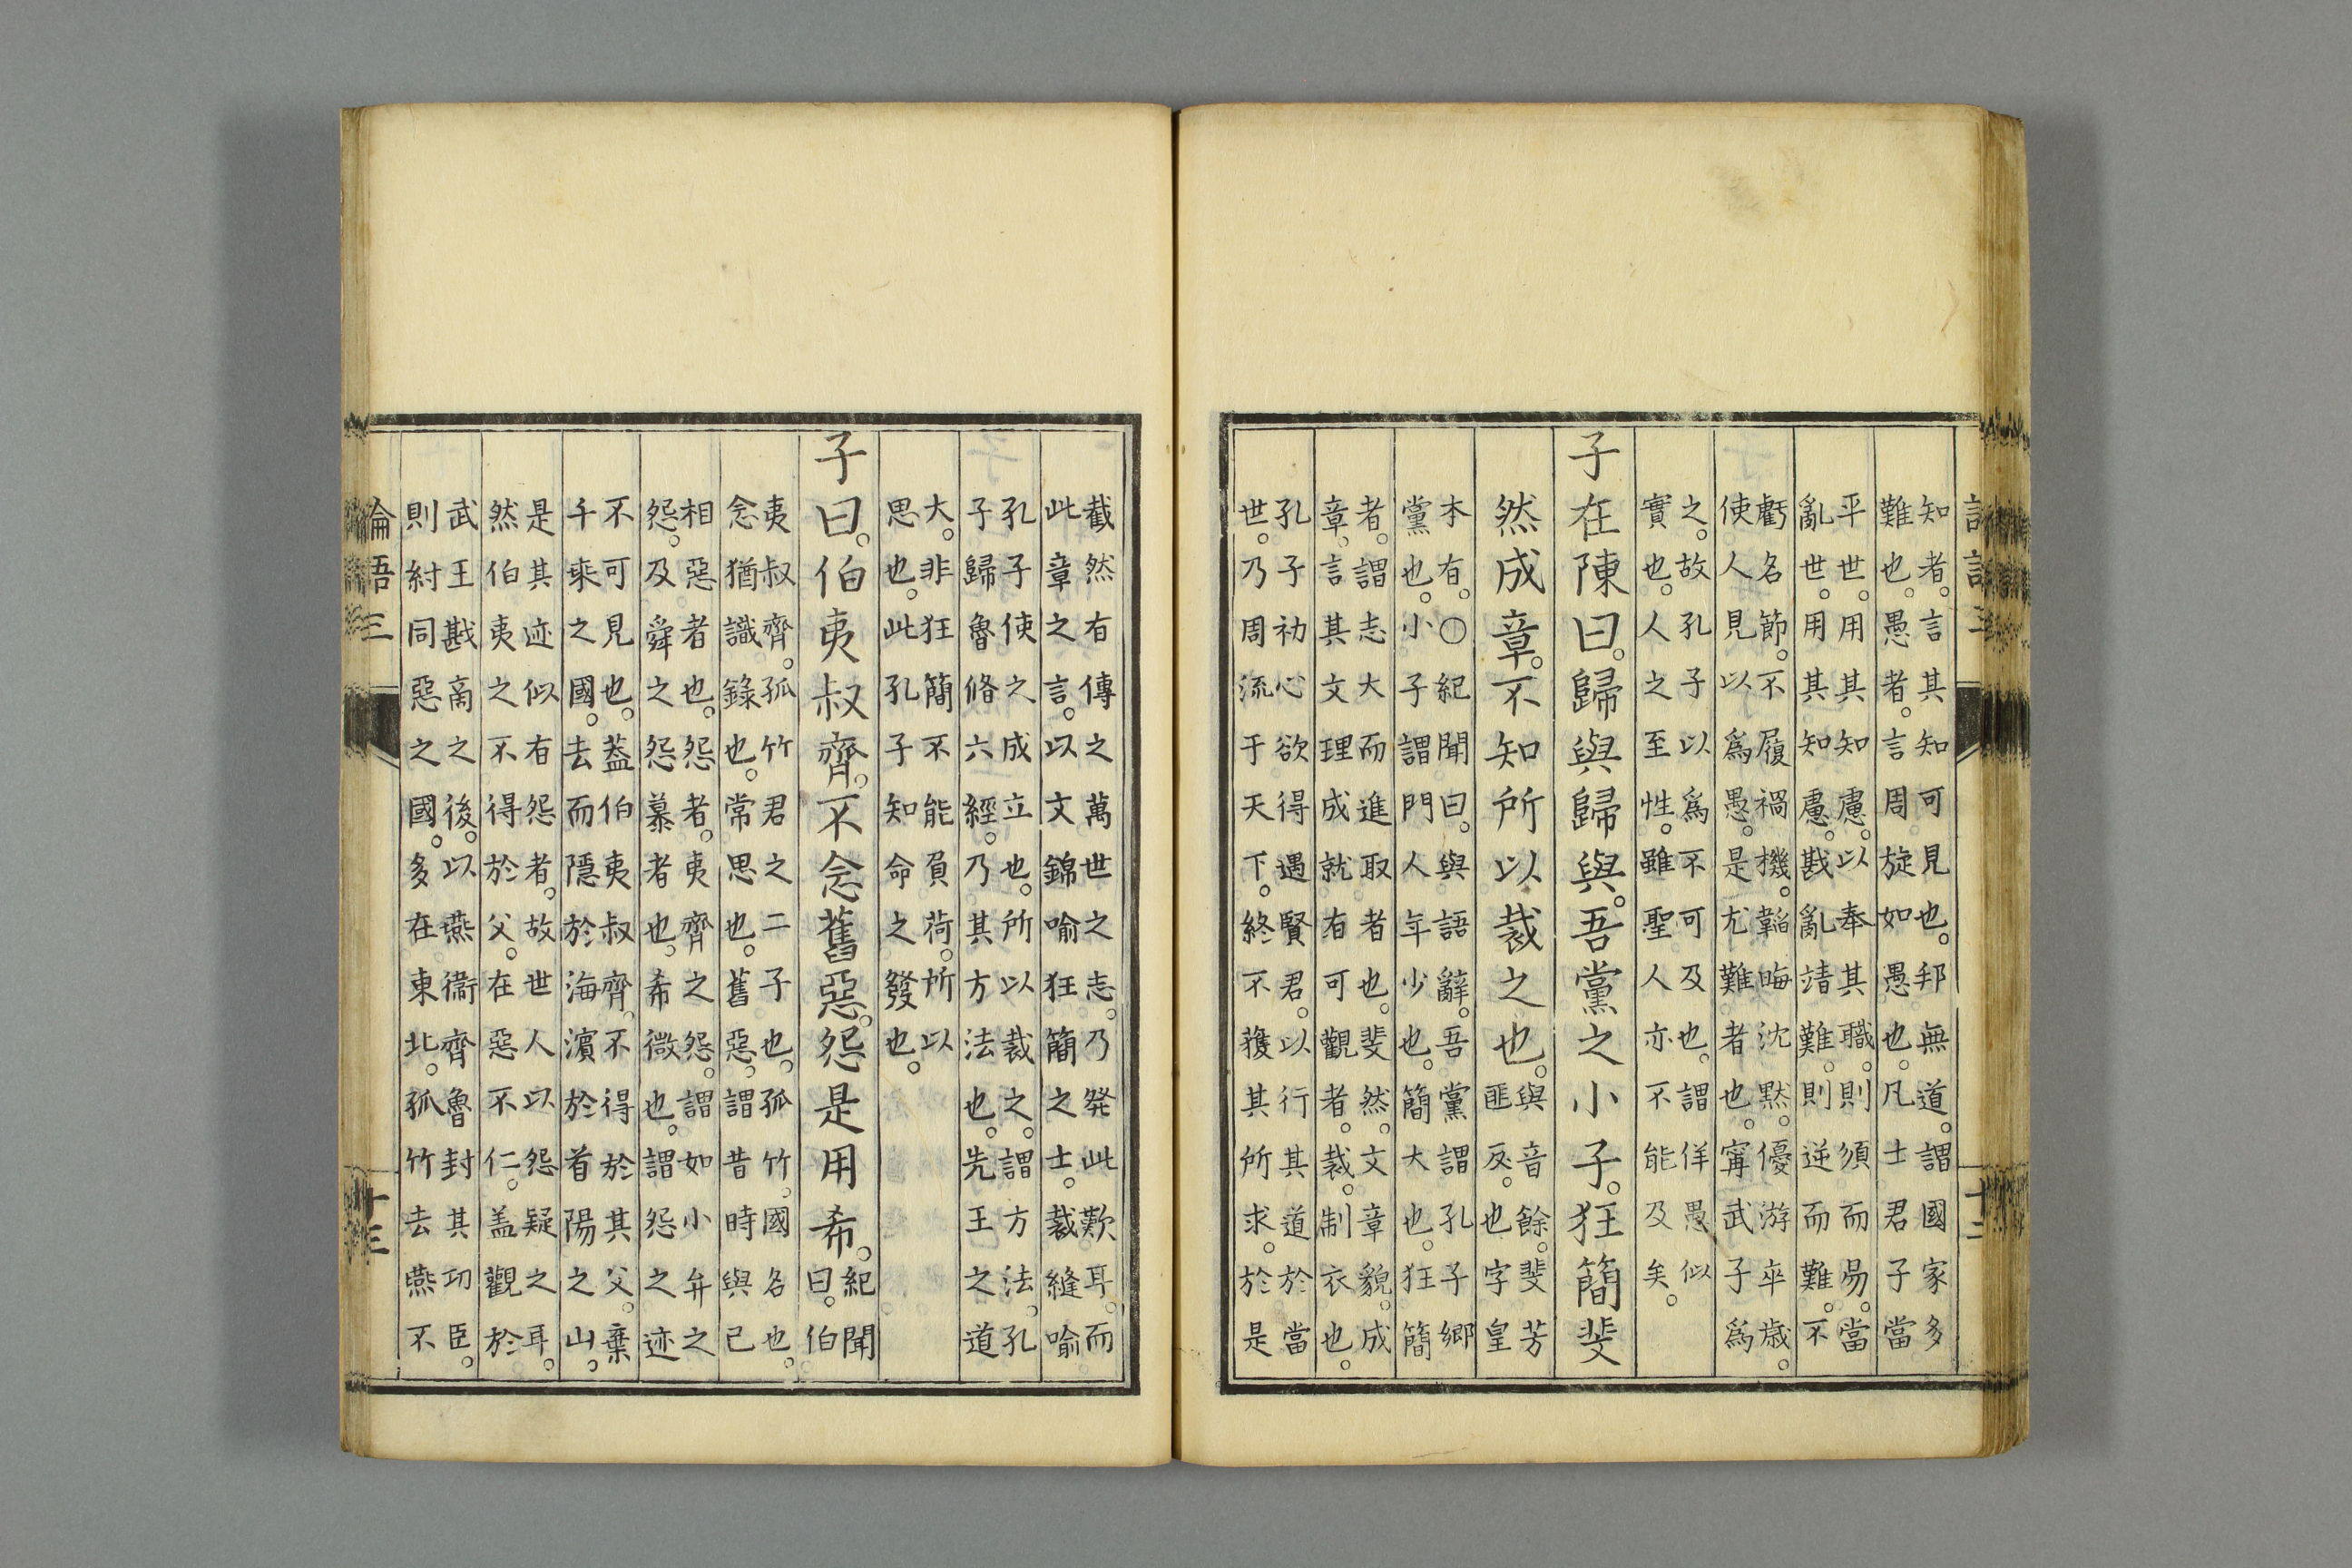 知者。言其知可見也。邦無道。謂國家多
難也。愚者。言周旋如愚也。凡士君子當
平世。用其知慮。以奉其職。則須而易。當
亂世。用其知慮。戡亂靖難。則逆而難。不
虧名節。不履禍機。韜晦沈默。優游卒歳。
使人見以爲愚。是尤難者也。甯武子爲
之。故孔子以爲不可及也。謂佯愚似
實也。人之至性。雖聖人亦不能及矣。
子在陳曰。歸與歸與。吾黨之小子。狂簡斐
然成章。不知所以裁之也。
與音餘。斐芳
匪反。也字皇
本有。○紀聞曰。與語辭。吾黨謂孔子鄉
黨也。小子謂門人年少也。簡大也。狂簡
者。謂志大而進取者也。斐然。文章貌。成
章。言其文理成就有可觀者。裁。制衣也。
孔子初心欲得遇賢君。以行其道於當
世。乃周流于天下。終不獲其所求。於是
截然有傳之萬世之志。乃発此歎耳。而
此章之言。以文錦喻狂簡之士。裁縫喻
孔子使之成立也。所以裁之。謂方法。孔
子歸魯脩六經。乃其方法也。先王之道
大。非狂簡不能負荷。所以
思也。此孔子知命之發也。
子曰。伯夷叔齊。不念舊惡。怨是用希。
紀聞
曰。伯
夷叔齊。孤竹君之二子也。孤竹。國名也。
念猶識錄也。常思也。舊惡。謂昔時與己
相惡者也。怨怨者。夷齊之怨。謂如小弁之
怨。及舜之怨慕者也。希微也。謂怨之迹
不可見也。蓋伯夷叔齊。不得於其父。棄
千乘之國。去而隱於海濱於首陽之山。
是其迹似有怨者。故世人以怨疑之耳。
然伯夷之不得於父。在惡不仁。盖觀於
武王戡商之後。以燕衞齊魯封其功臣。
則紂同惡之國。多在東北。孤竹去燕不
論語三
十三